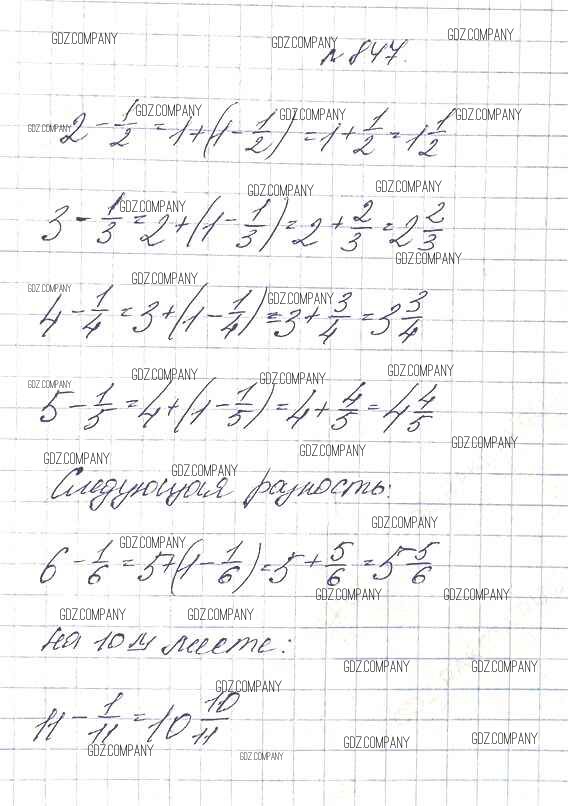 GDZ.COMPANY GDZ.COMPANY GDZ.COMPANY
№ 847.
GDZ.COMPANY GDZ.COMPANY GDZ.COMPANY GDZ.COMPANY
2 - 1/2 = 1 + (1 - 1/2) = 1 + 1/2 = 1 1/2
GDZ.COMPANY GDZ.COMPANY GDZ.COMPANY
3 - 1/3 = 2 + (1 - 1/3) = 2 + 2/3 = 2 2/3
GDZ.COMPANY
GDZ.COMPANY GDZ.COMPANY GDZ.COMPANY
4 - 1/4 = 3 + (1 - 1/4) = 3 + 3/4 = 3 3/4
GDZ.COMPANY GDZ.COMPANY GDZ.COMPANY GDZ.COMPANY
5 - 1/5 = 4 + (1 - 1/5) = 4 + 4/5 = 4 4/5
GDZ.COMPANY GDZ.COMPANY GDZ.COMPANY GDZ.COMPANY
Следующая разность:
GDZ.COMPANY GDZ.COMPANY
6 - 1/6 = 5 + (1 - 1/6) = 5 + 5/6 = 5 5/6
GDZ.COMPANY GDZ.COMPANY
GDZ.COMPANY GDZ.COMPANY
на 10м месте:
GDZ.COMPANY GDZ.COMPANY
GDZ.COMPANY
11 - 1/11 = 10 10/11
GDZ.COMPANY GDZ.COMPANY GDZ.COMPANY GDZ.COMPANY